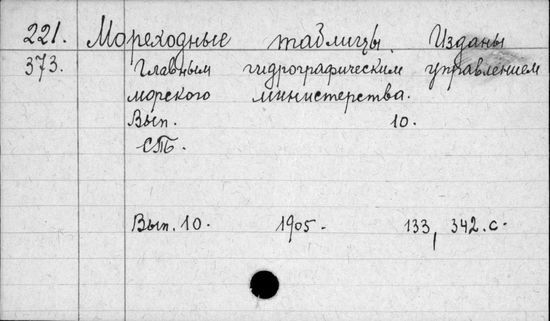 221. Мореходные таблицы. Изданы
373. Главным гидрографическим управлением
морского министерства.
Вып. 10.
СПб.
Вып. 10. 1905. 133, 342.с.